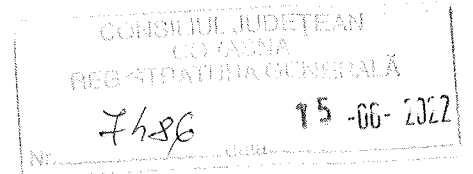 CONSILIUL JUDEȚEAN
COVASNA
REGISTRATURA GENERALĂ
Nr. 7486 data 15 -06- 2022